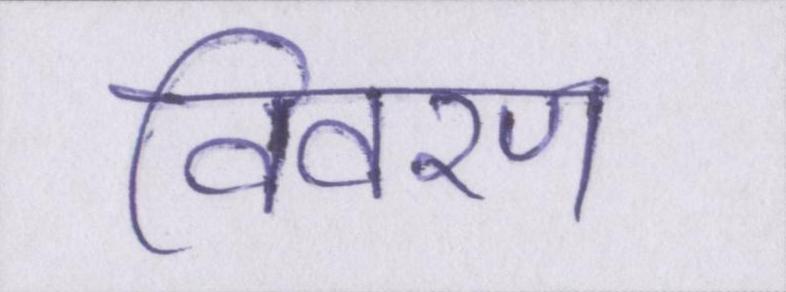 विवरण